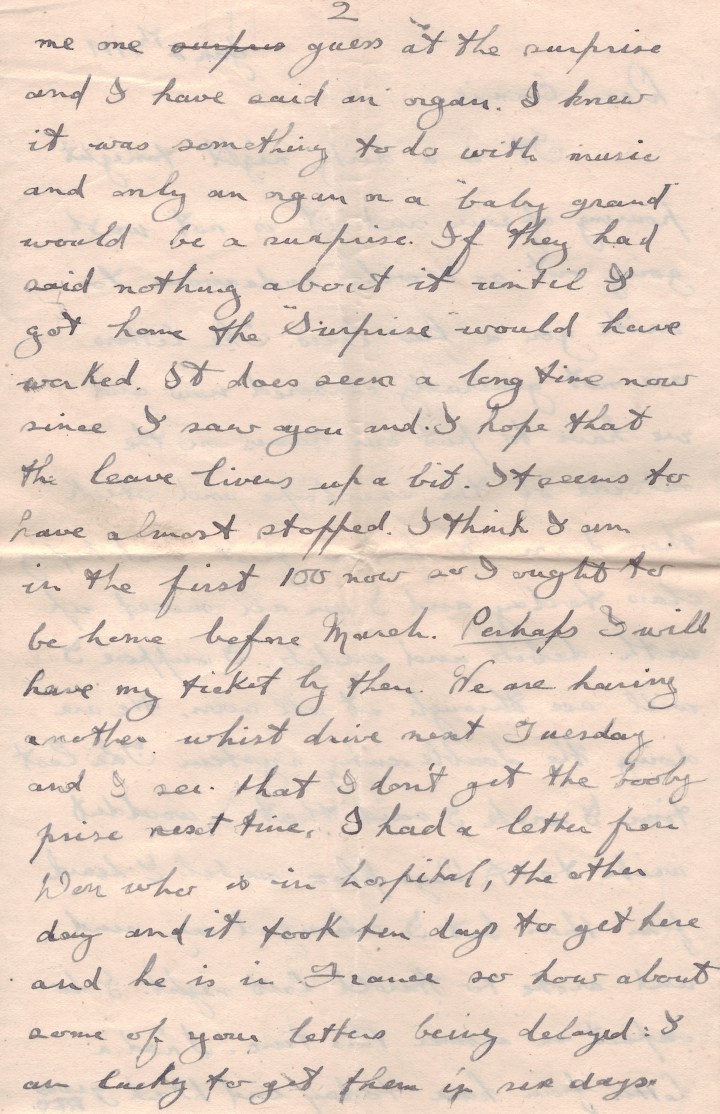 2
me one surprus guess at the surprise
and I have said an organ. I knew
it was something to do with music
and only an organ or a "baby grand"
would be a surprise. If they had
said nothing about it until I
got home the "Surprise" would have
worked. It does seem a long time now
since I saw you and I hope that
the leave livens up a bit. It seems to
have almost stopped. I think I am
in the first 100 now so I ought to
be home before March. Perhaps I will
have my ticket by then. We are having
another whist drive next Tuesday
and I see that I don't get the booby
prise next time. I had a letter from
who is in hospital, the other
day and it took ten days to get here
and he is in France so how about
some of your letters being delayed: I
am lucky to get them in six days.